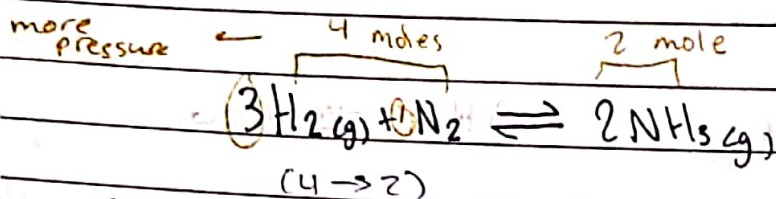 more pressure ← 4 moles 2 mole
3H₂(g) + 1N₂ ⇌ 2NH₃(g)
(4→2)